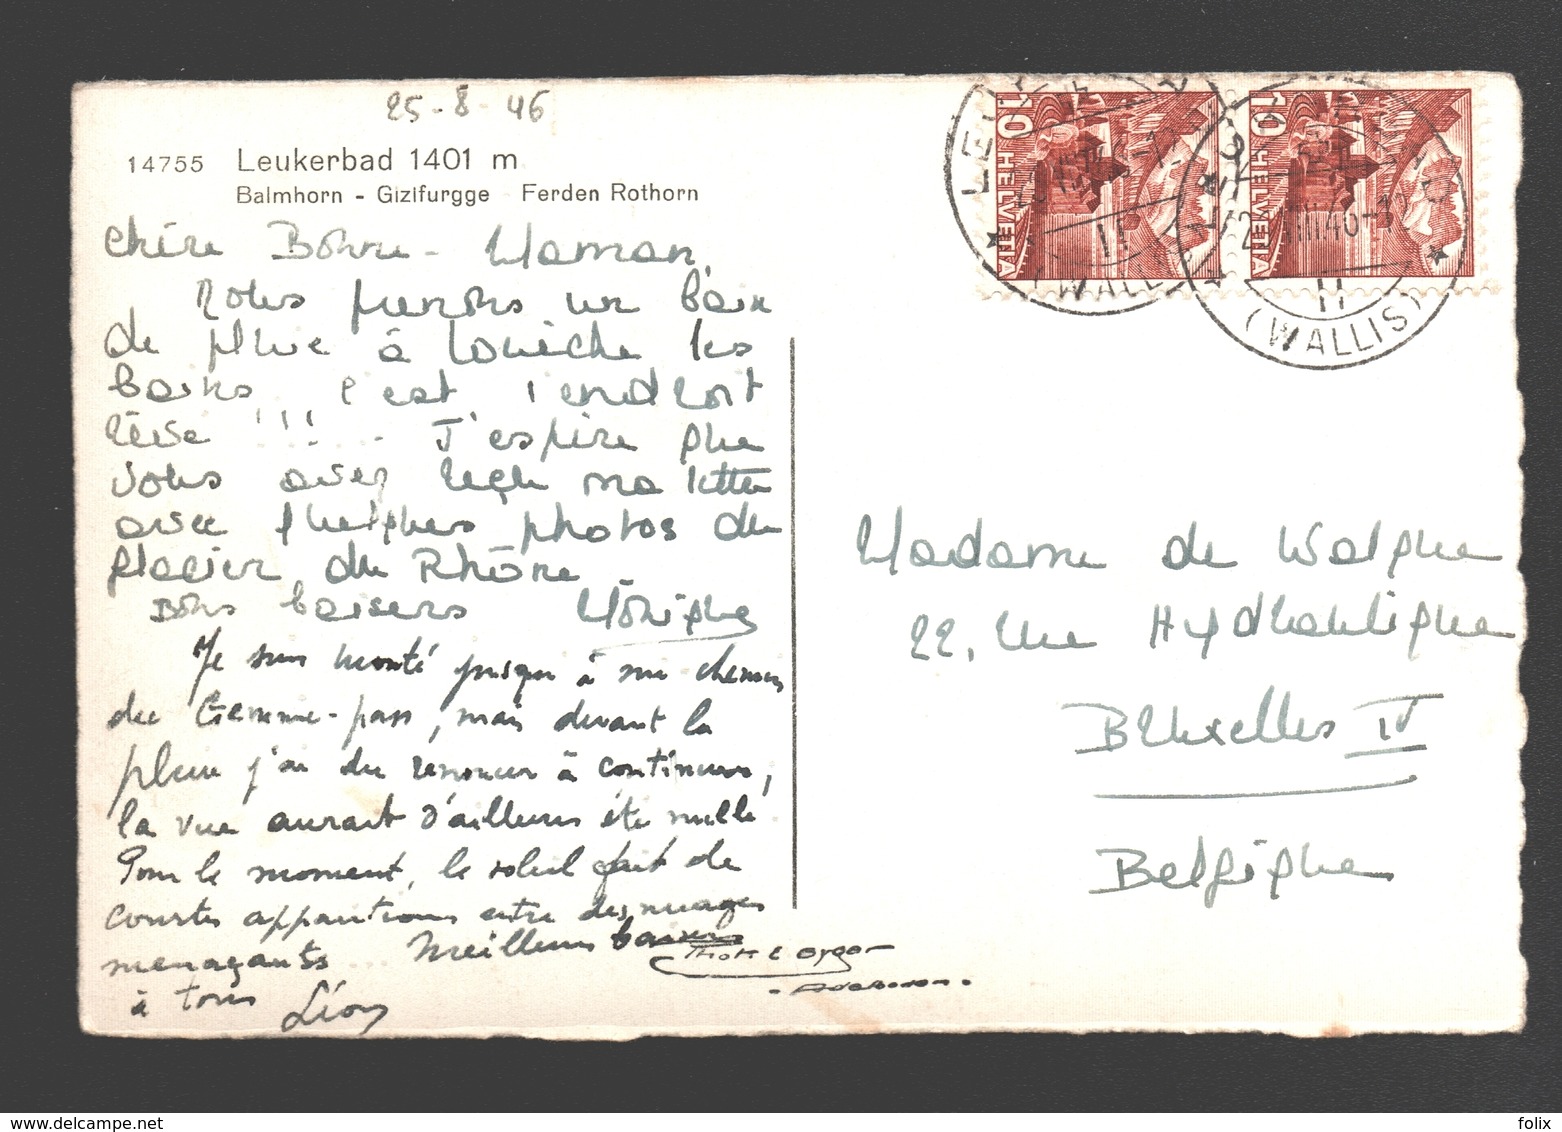 25-8-46
14755 Leukerbad 1401 m
Balmhorn - Gizifurgge Ferden Rothorn
Chère Bonne-Maman,
Nous prenons un bain
de pluie à Louèche les
bains c'est l'endroit
rêvé !!! ... J'espère que
vous avez reçu ma lettre
avec quelques photos du
glacier du Rhône
Bons baisers Monique
Je suis monté jusqu'à mi chemin
du Gemmi-pass, mais devant la
pluie j'ai du renoncer à continuer,
la vue aurait d'ailleurs été nulle.
Pour le moment, le soleil fait de
courtes apparitions entre des nuages
menaçants... Meilleurs baisers
à tous Léon
HELVETIA 10
HELVETIA 10
(WALLIS)
(WALLIS)
Madame de Walque
22, rue Hydraulique
Bruxelles IV
Belgique
folix